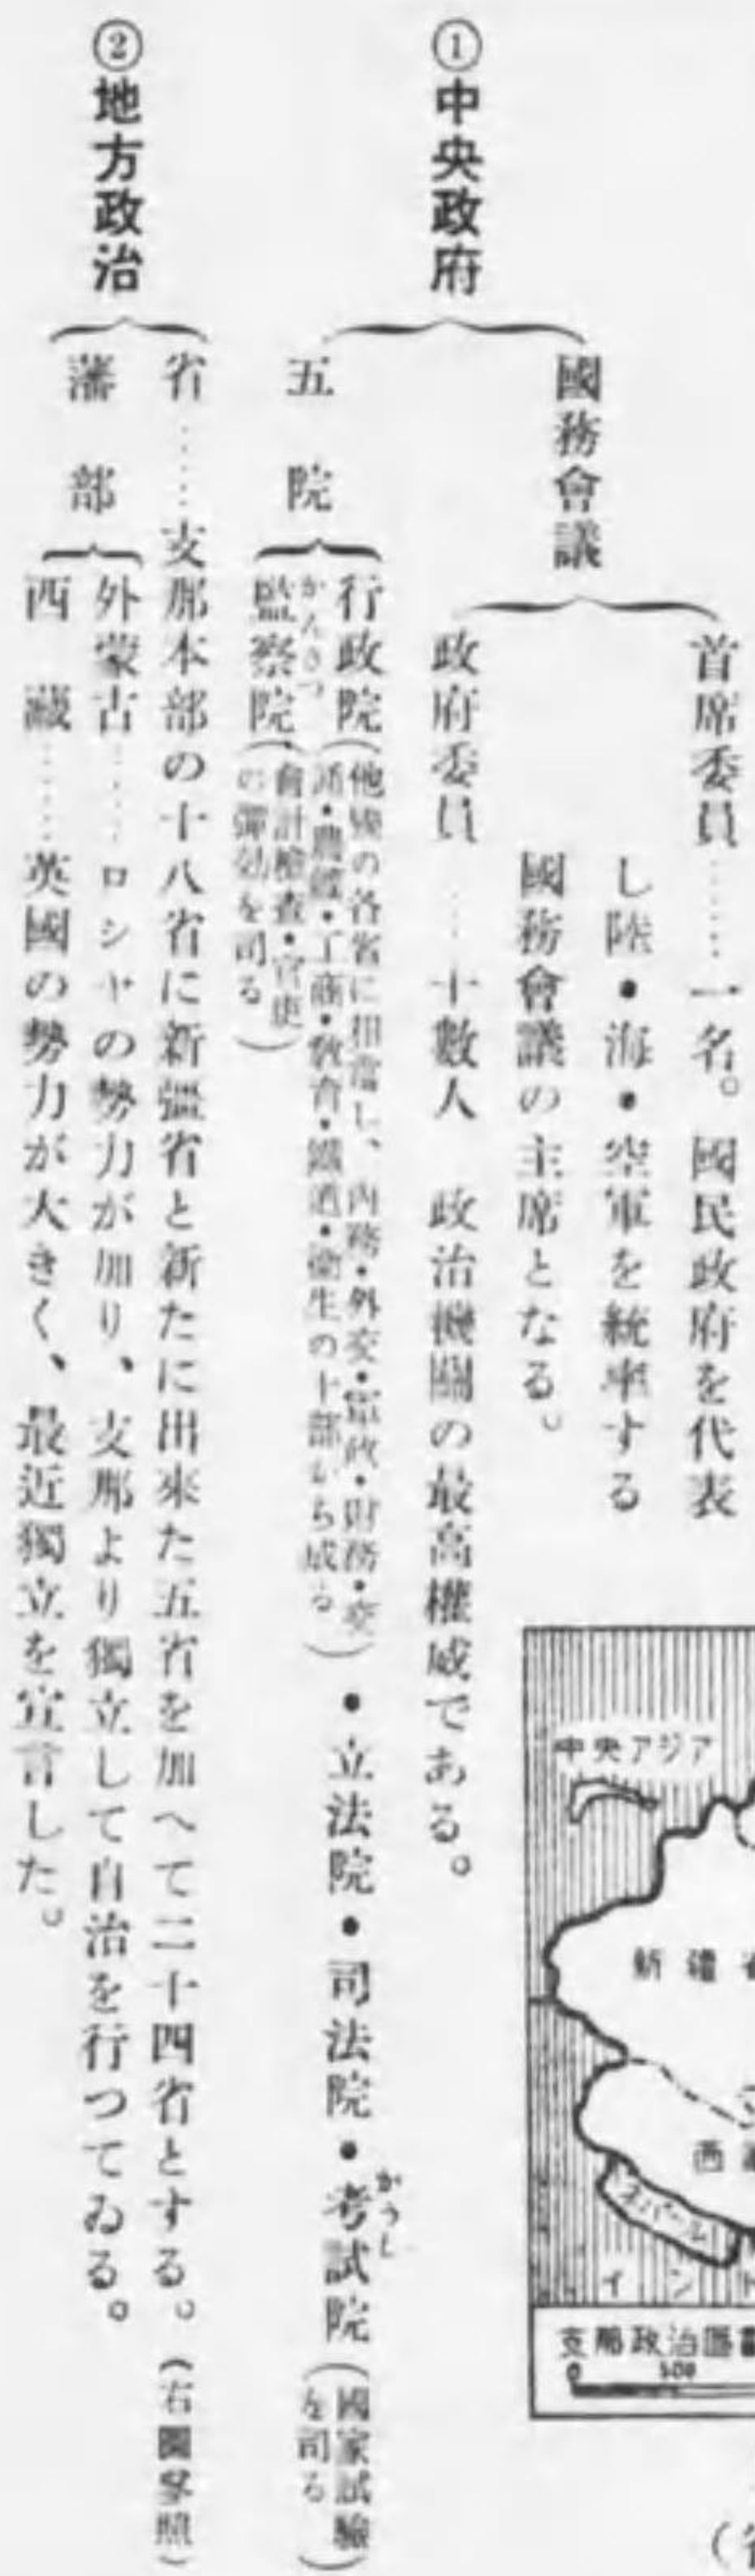 ①中央政府
國務會議
首席委員……一名。國民政府を代表
し陸・海・空軍を統率する
國務會議の主席となる。
政府委員……十數人 政治機關の最高權威である。
五院
行政院(他國の各省に相當し、內務・外交・軍政・財務・交
通・農鑛・工商・敎育・鐵道・衞生の十部から成る)・立法院・司法院・考試院(國家試驗
を司る)
かうし
監察院(會計檢査・官吏
の彈劾を司る)
かんさつ
②地方政治
省……支那本部の十八省に新疆省と新たに出來た五省を加へて二十四省とする。(右圖參照)
藩部
外蒙古……ロシヤの勢力が加り、支那より獨立して自治を行つてゐる。
西藏……英國の勢力が大きく、最近獨立を宣言した。
中央アジア
新疆省
西藏
ネパール
インド
支那政治區
0 500